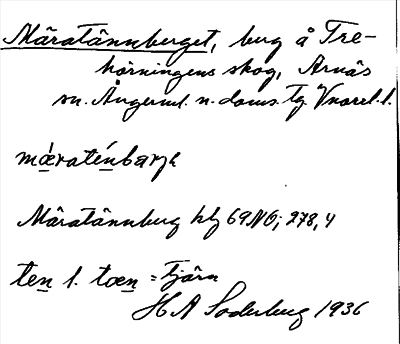 Måratännberget, berg å Tre-
hörningens skog, Arnäs
sn. Ångerml. n. doms. Tg
måratenbarjk
Måratännberg kbl 69NO; 278,4
ten l. tœn = Tjärn
H A Söderberg 1936